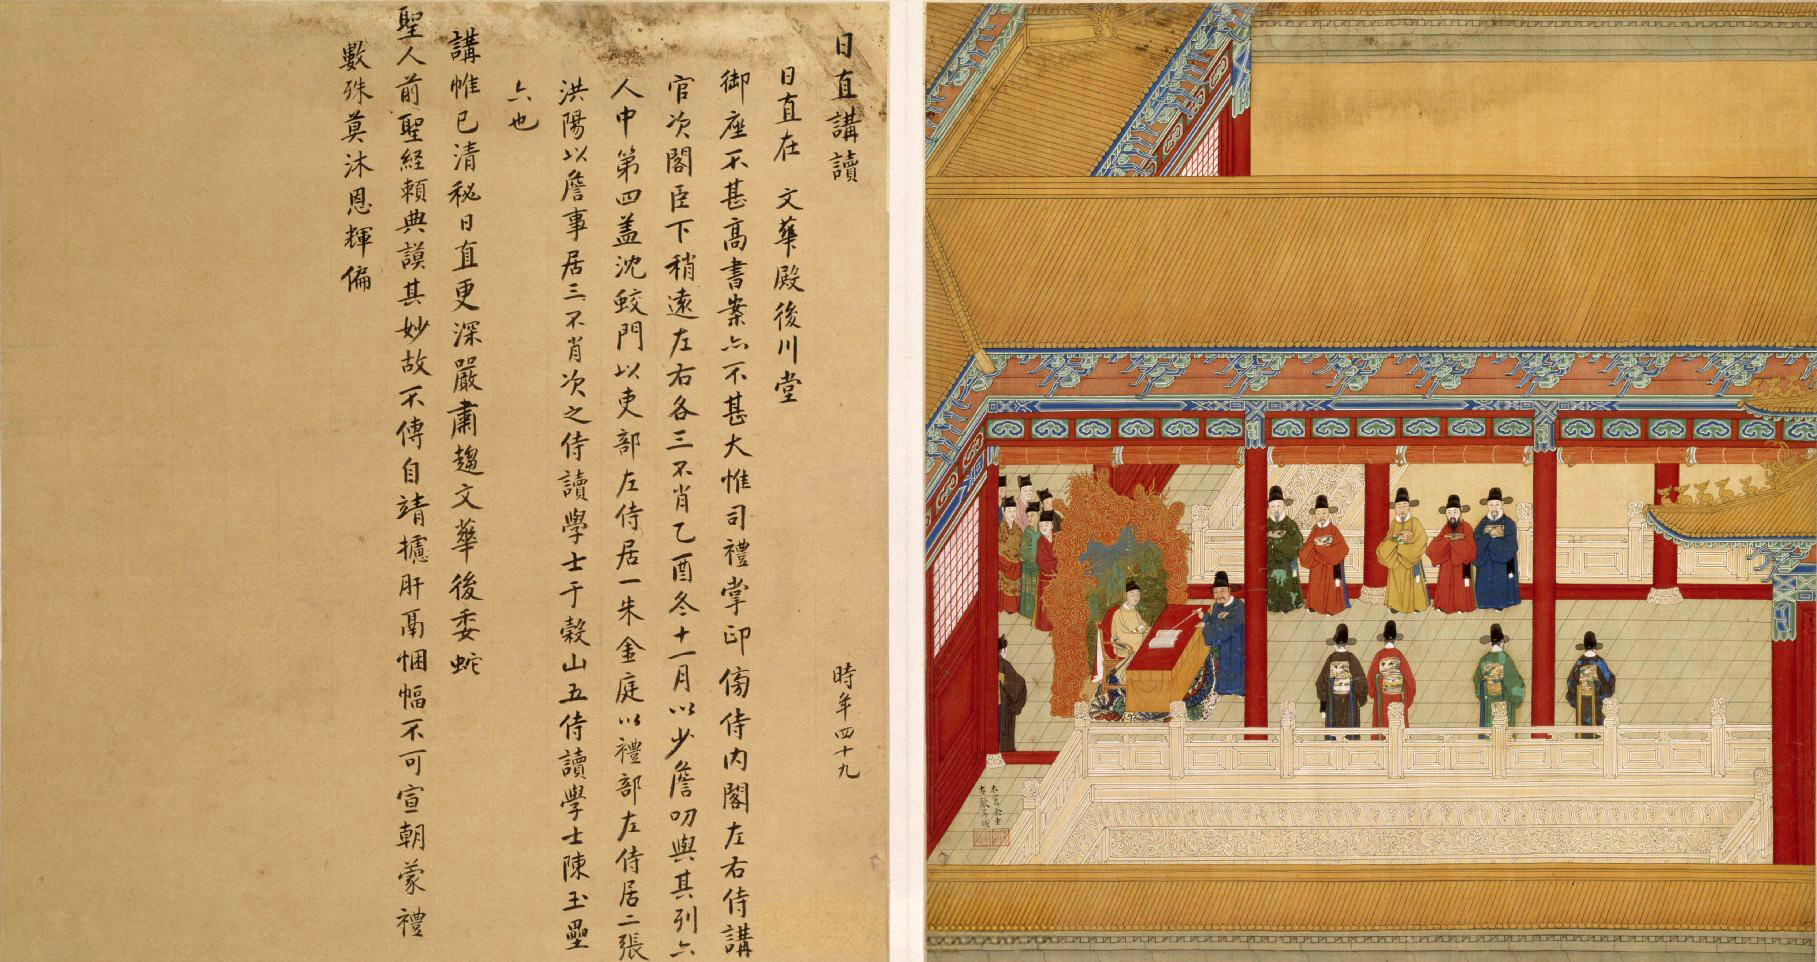 日直講讀
時年四十九
日直在 文華殿後川堂
御座不甚高書案亦不甚大惟司禮掌印傍侍內閣左右侍講
官次閣臣下稍遠左右各三不肖乙酉冬十一月以少詹叨與其列六
人中第四蓋沈蛟門以吏部左侍居一朱金庭以禮部左侍居二張
洪陽以詹事居三不肖次之侍讀學士于穀山五侍讀學士陳玉壘
六也
講帷已清秘日直更深嚴肅趨文華後委蛇
聖人前聖経賴典謨其妙故不傳自靖攄肝鬲悃愊不可宣朝蒙禮
數殊莫沐恩輝偏